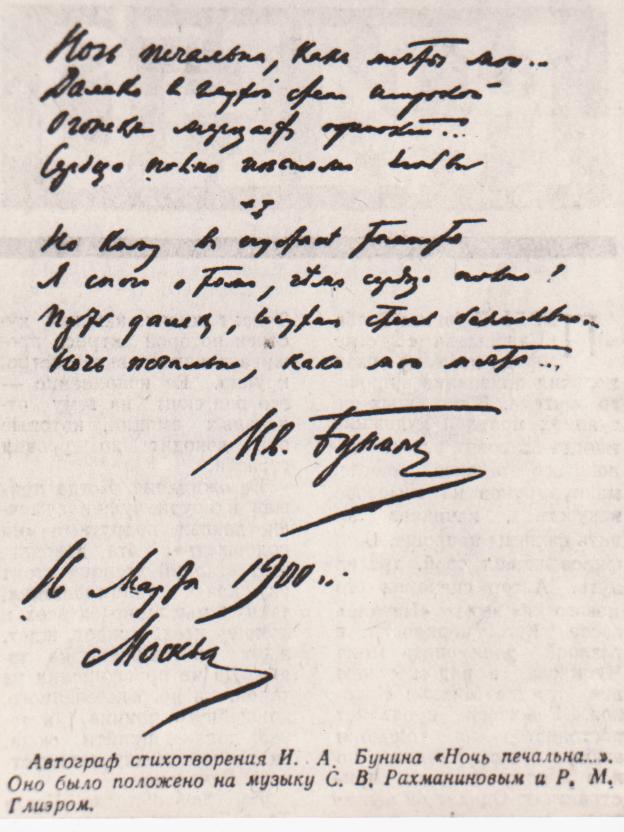 Ночь печальна, какъ мечты мои...
Далеко в глухой степи широкой
Огонекъ мерцаетъ одинокий...
Сердце полно любви
Но кому в
Я спою о томъ, чѣмъ сердце полно?
Путь далекъ, глухая степь безмолвна...
Ночь печальна, какъ мои мечты...
Ив. Бунин
Марта 1900 г.
Москва
Автограф стихотворения И. А. Бунина «Ночь печальна...».
Оно было положено на музыку С. В. Рахманиновым и Р. М.
Глиэром.